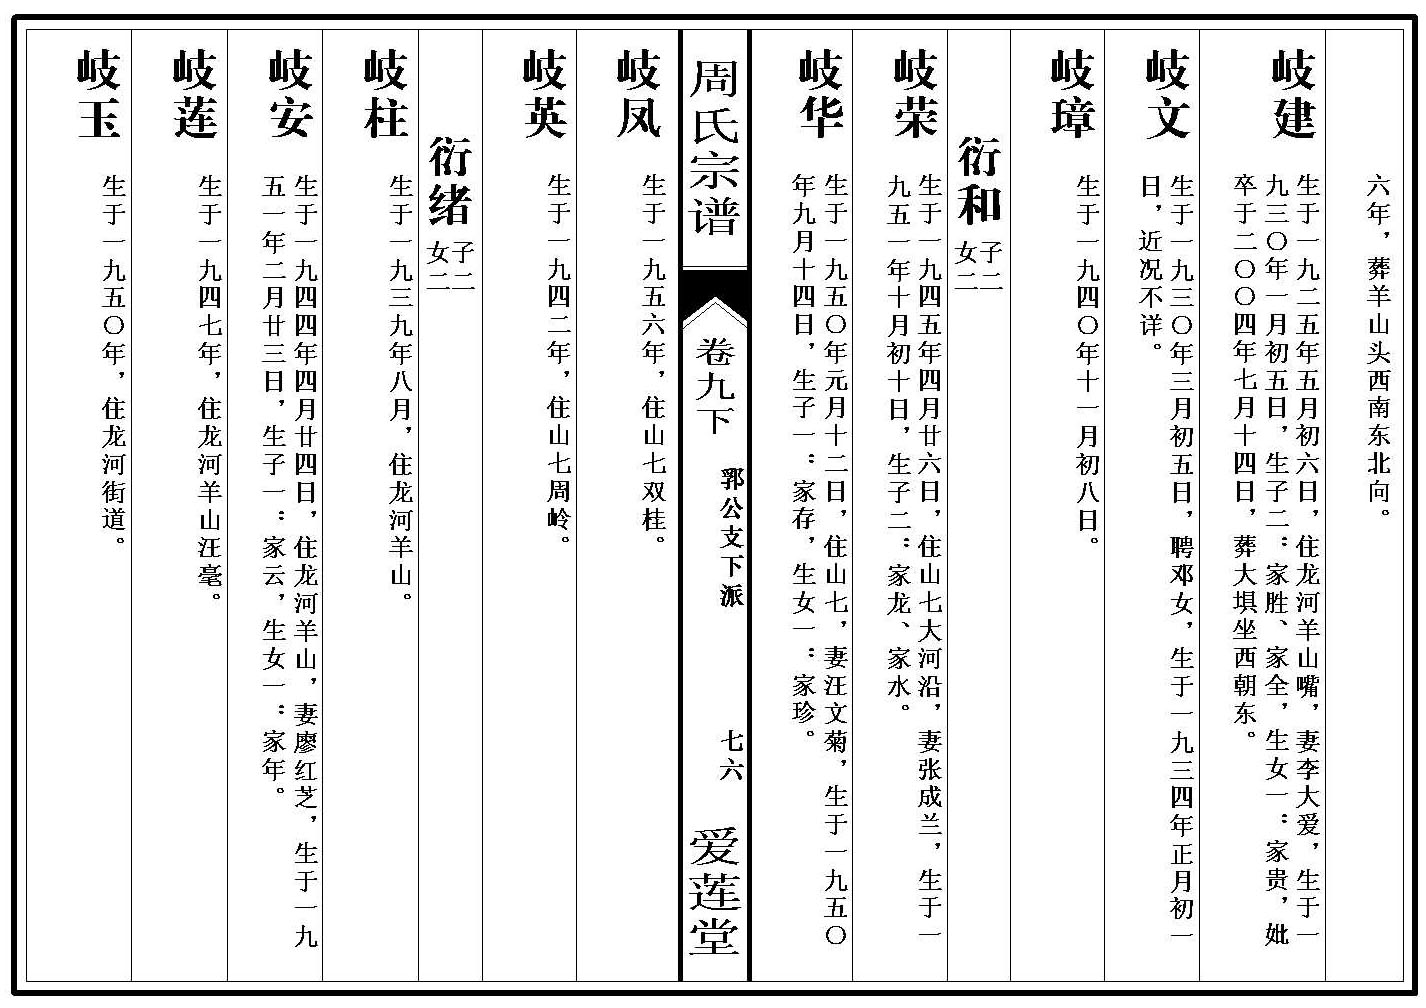 六年，葬羊山头西南东北向。
岐建
生于一九二五年五月初六日，住龙河羊山嘴，妻李大爱，生于一
九三〇年一月初五日，生子二：家胜、家全，生女一：家贵，妣
卒于二〇〇四年七月十四日，葬大埧坐西朝东。
岐文
生于一九三〇年三月初五日，聘邓女，生于一九三四年正月初一
日，近况不详。
岐璋
生于一九四〇年十一月初八日。
衍和
子二
女二
岐荣
生于一九四五年四月廿六日，住山七大河沿，妻张成兰，生于一
九五一年十月初十日，生子二：家龙、家水。
岐华
生于一九五〇年元月十二日，住山七，妻汪文菊，生于一九五〇
年九月十四日，生子一：家存，生女一：家珍。
周氏宗谱
卷九下
郭公支下派
七六
爱莲堂
岐凤
生于一九五六年，住山七双桂。
岐英
生于一九四二年，住山七周岭。
衍绪
子二
女二
岐柱
生于一九三九年八月，住龙河羊山。
岐安
生于一九四四年四月廿四日，住龙河羊山，妻廖红芝，生于一九
五一年二月廿三日，生子一：家云，生女一：家年。
岐莲
生于一九四七年，住龙河羊山汪毫。
岐玉
生于一九五〇年，住龙河街道。